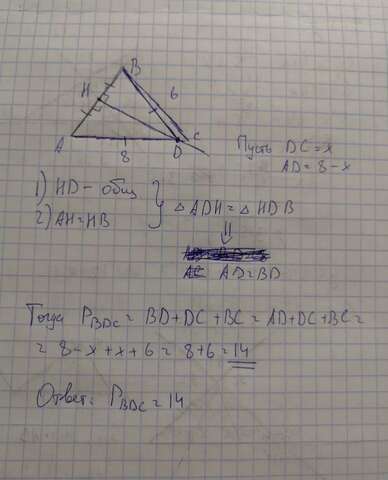 B
H
6
A
8
D
C
Пусть DC = x
AD = 8 - x
1) HD - общ
2) AH = HB
△ ADH = △ HDB
⇓
AC AD = BD
Тогда P_BDC = BD + DC + BC = AD + DC + BC =
= 8 - x + x + 6 = 8 + 6 = 14
Ответ: P_BDC = 14